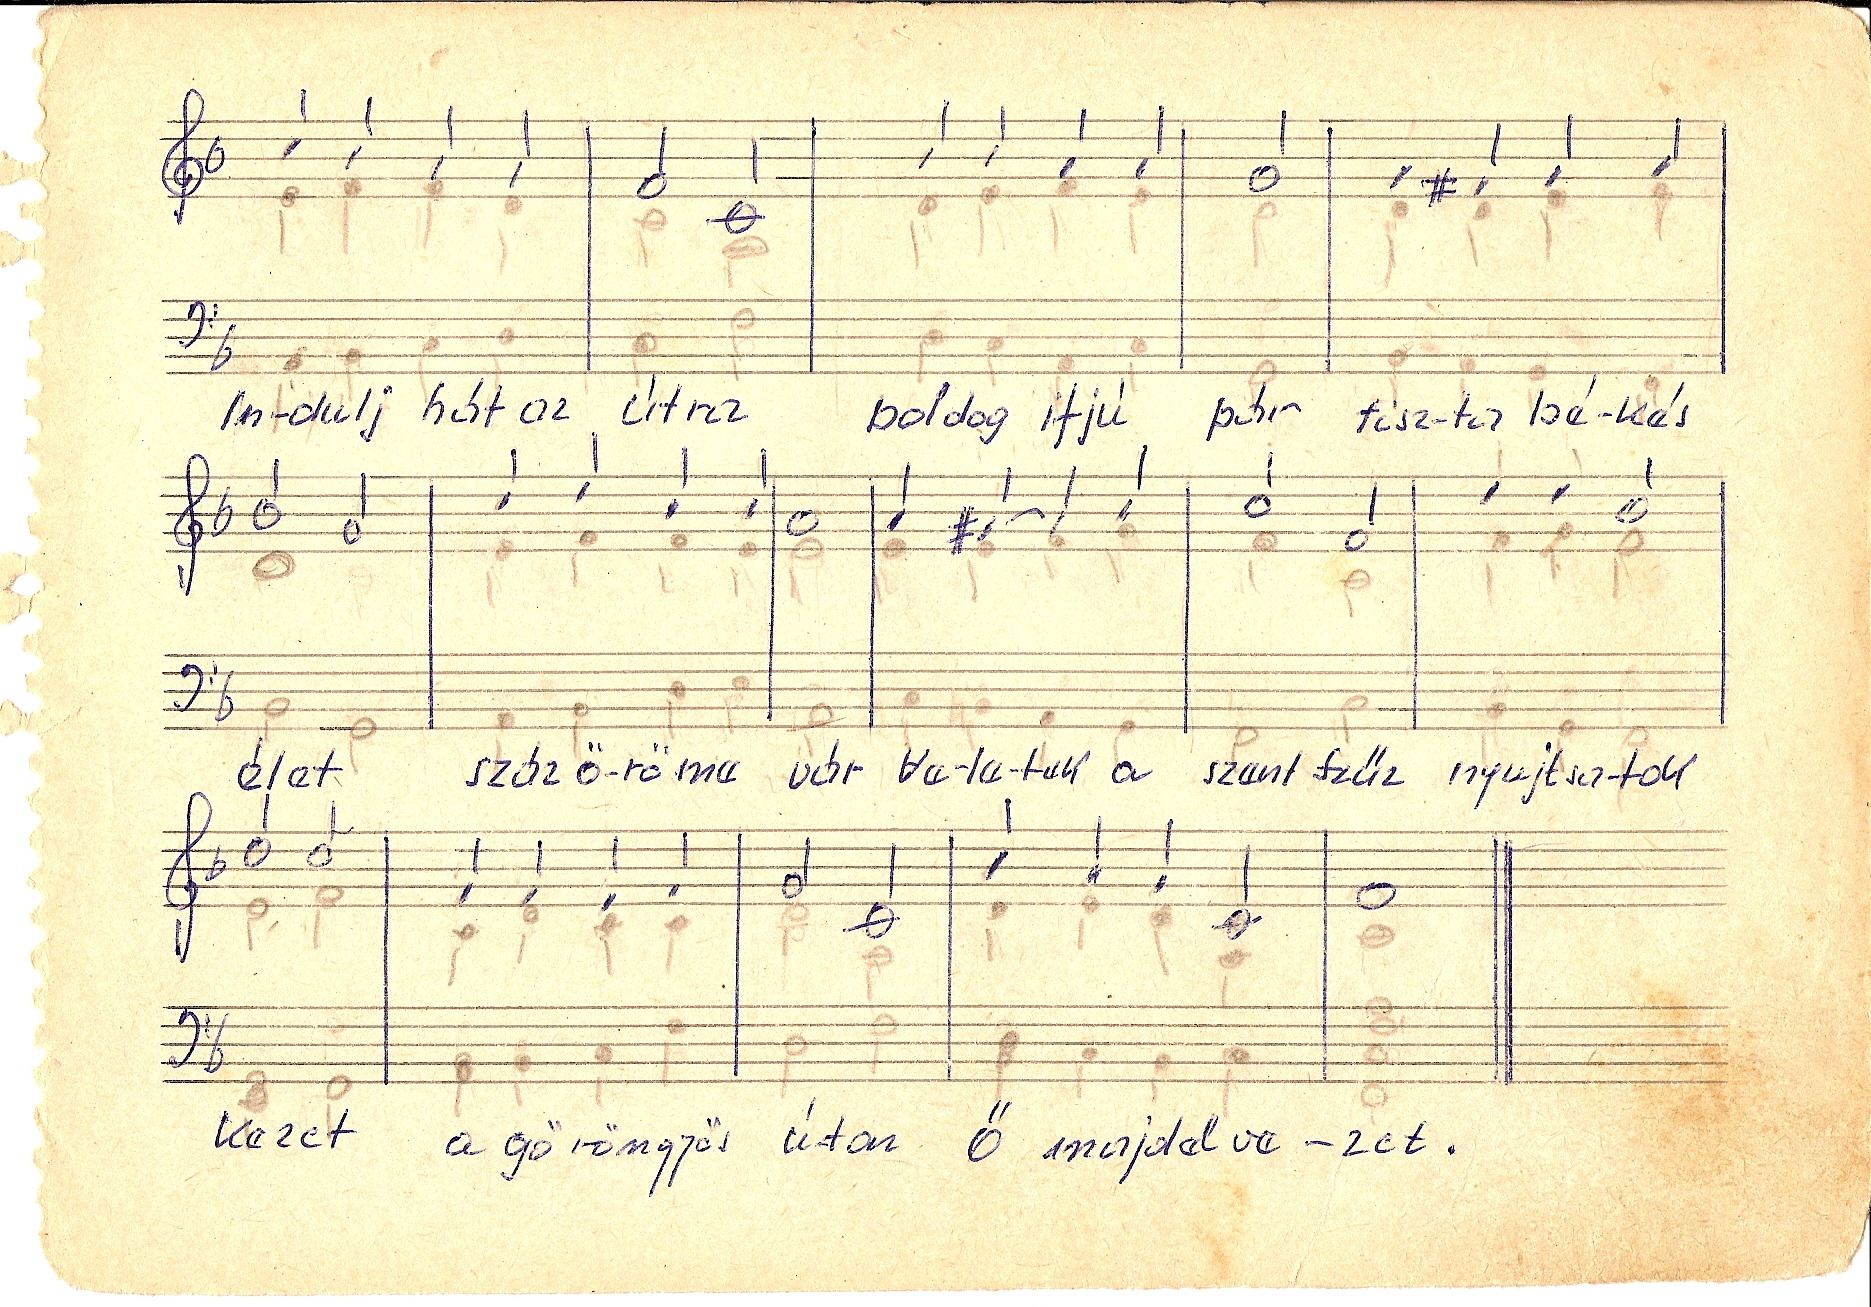 In-dulj hát az útra boldog ifjú pár tisz-ta bé-kés
élet száz ö-röme vár ve-le-tek a szent szűz nyujtsa-tok
kezet a gö röngyös úton Ő majd el ve - zet.